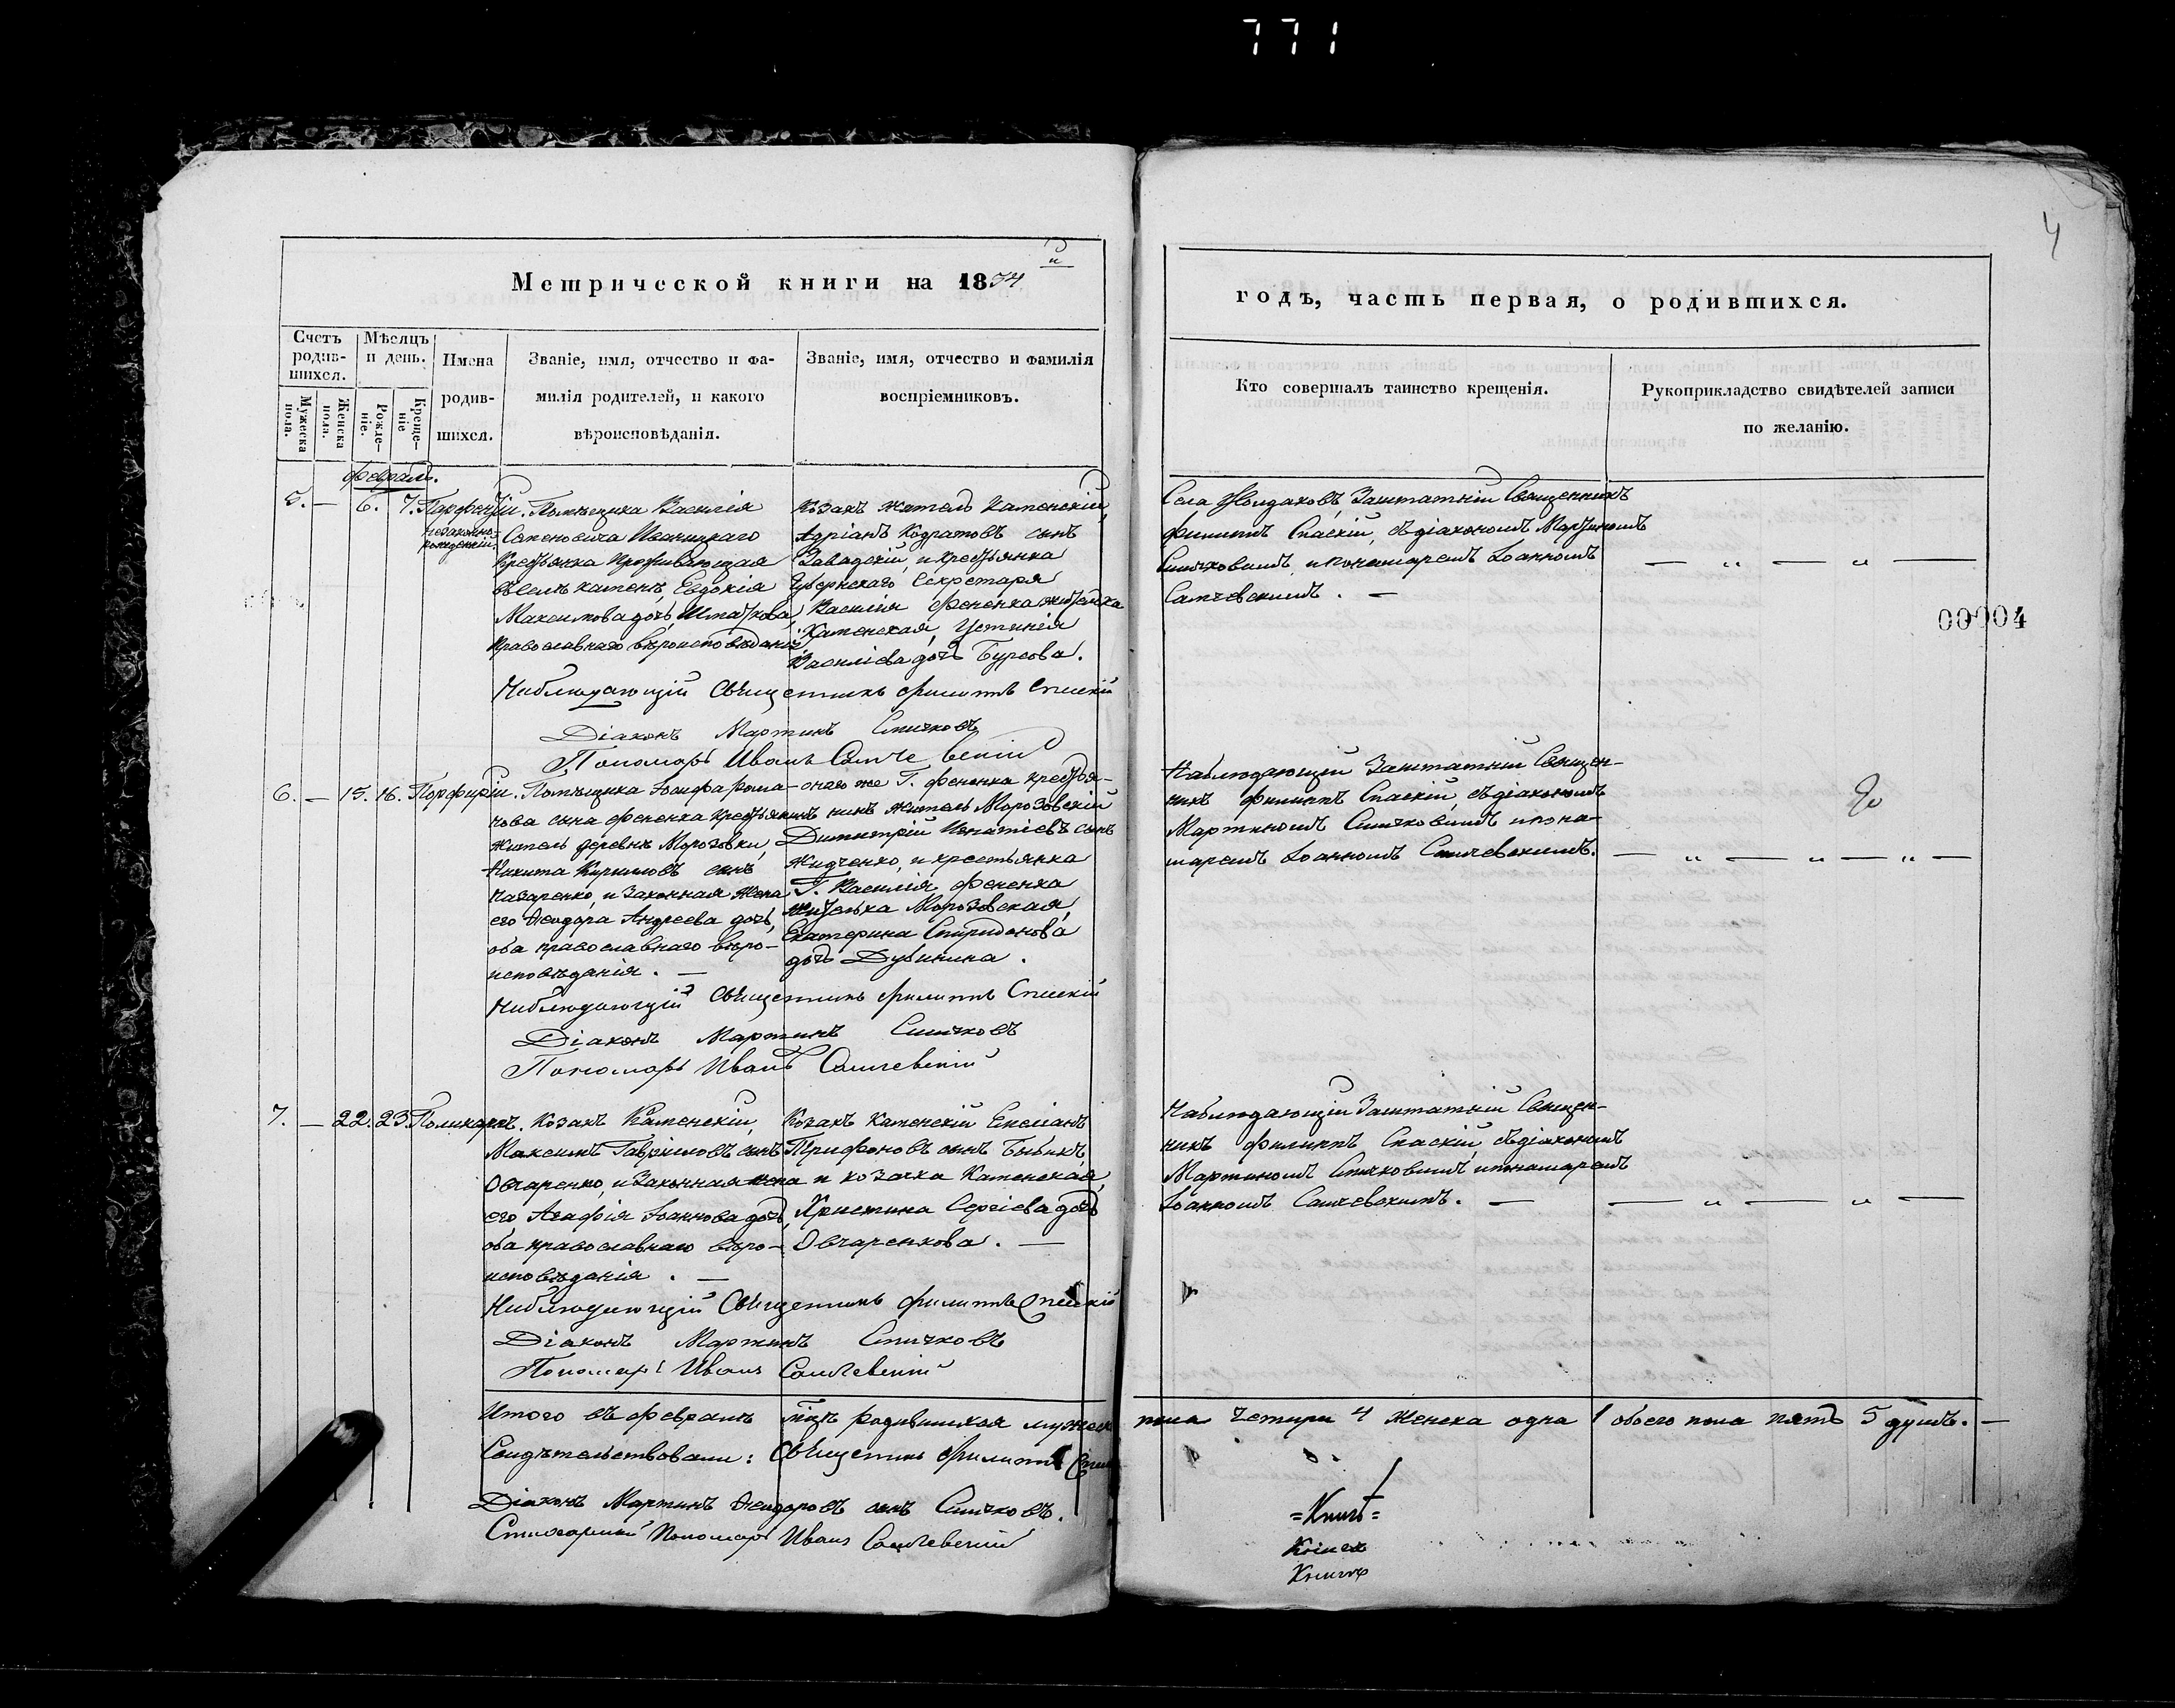 771
4
Метрической книги на 18
годъ, часть первая, о родившихся.
Счетъ родив-шихся.
Мѣсяцъ и день.
Имена родив-шихся.
Званіе, имя, отчество и фа-
милія родителей, и какого
вѣроисповѣданія.
Званіе, имя, отчество и фамилія
воспріемниковъ.
Мужеска пола.
Женска пола.
Рожде-ніе.
Креще-ніе
Кто совершалъ таинство крещенія.
Рукоприкладство свидѣтелей записи
по желанію.
00004
5. — 6. 7.
незаконно-
рожденній.
Помѣщика Василія
Семеновича Иваницкаго
Крестьянка проживающая
въ селѣ каменѣ, Евдокія
Максимова дочь,
православнаго вѣроисповѣданія
Козакъ житель Каменскій,
Адріанъ Кодратовъ сынъ
Завадскій, и крестьянка
Губернскаго Секретаря
Василія Фененка жителька
Каменская, Устинія
Василіева дочь Бурсова.
Села Заштатній Священникъ
Филиппъ Спаскій, съ діакономъ Мартиномъ
Спичковимъ и пономаремъ Іоанномъ
Самчевскимъ. —
Наблюдающій Священникъ Филиппъ Спаскій
Діаконъ Мартинъ Спичковъ
Пономарь Иванъ Самчевскій
6. — 15. 16. Порфирій.
Помѣщика Іосифа Рома-
нова сына Фененка крестьянинъ
житель деревнѣ Морозовки,
Никита Кириловъ сынъ
Назаренко, и законная жена
его Ѳеодора Андреева дочь,
оба православнаго вѣро-
исповѣданія. —
онаго же Г. Фененка крестья-
нинъ житель Морозовскій
Димитрій Игнатіевъ сынъ
Жидченко, и крестьянка
Г. Василія Фененка
жителька Морозовская,
Екатерина Спиридонова
дочь Дубинина.
Наблюдающій Заштатній Священ-
никъ Филиппъ Спаскій, съ діакономъ
Мартиномъ Спичковимъ и пона-
маремъ Іоанномъ Самчевскимъ.
Наблюдающій Священникъ Филиппъ Спаскій
Діаконъ Мартинъ Спичковъ
Пономарь Иванъ Самчевскій
7. — 22. 23. Поликарпъ.
Козакъ Каменскій,
Максимъ Гавріиловъ сынъ
Овчаренко, и законная жена
его Агафія Іоаннова дочь,
оба православнаго вѣро-
исповѣданія. —
Козакъ Каменскій
Трифоновъ сынъ
и козачка Каменская,
Христина Сергіева дочь
Овчаренкова. —
Наблюдающій Заштатній Священ-
никъ Филиппъ Спаскій, съ діакономъ
Мартиномъ Спичковимъ и понамаремъ
Іоанномъ Самчевскимъ. —
Наблюдающій Священникъ Филиппъ Спаскій
Діаконъ Мартинъ Спичковъ
Пономарь Иванъ Самчевскій
Итого въ февралѣ родившихся мужеска пола четири 4 женска одна 1 обоего пола пять 5 душъ. —
Свидѣтельствовали: Священникъ Филиппъ
Діаконъ Мартинъ Ѳеодоровъ сынъ Спичковъ.
Пономарь Иванъ Самчевскій